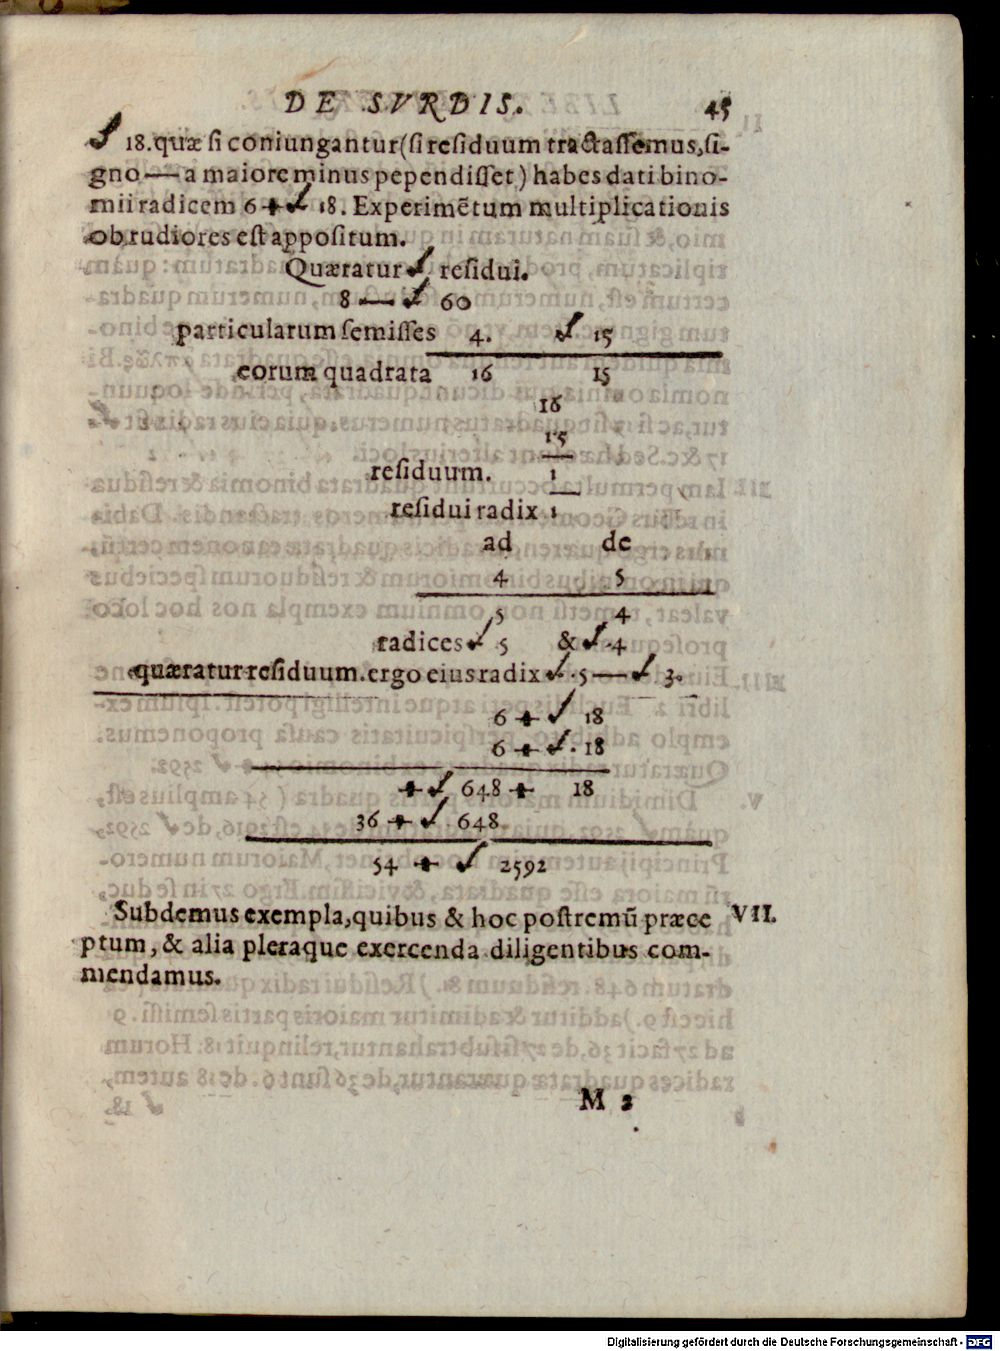 DE SVRDIS. 45
√ 18. quæ si coniungantur (si residuum tractassemus, si-
gno — a maiore minus pependisset) habes dati bino-
mii radicem 6 + √ 18. Experimẽtum multiplicationis
ob rudiores est appositum.
Quæratur √ residui.
8 — √ 60
particularum semisses 4. √ 15
eorum quadrata 16 15
16
15
residuum. 1
residui radix 1
ad de
4 5
5 4
radices √ 5 & √ 4
quæratur residuum. ergo eius radix √ 5 — √ 3.
6 + √ 18
6 + √ 18
+ √ 648 + 18
36 + √ 648
54 + √ 2592
Subdemus exempla, quibus & hoc postremũ præce VII.
ptum, & alia pleraque exercenda diligentibus com-
mendamus.
M 2
Digitalisierung gefördert durch die Deutsche Forschungsgemeinschaft - DFG